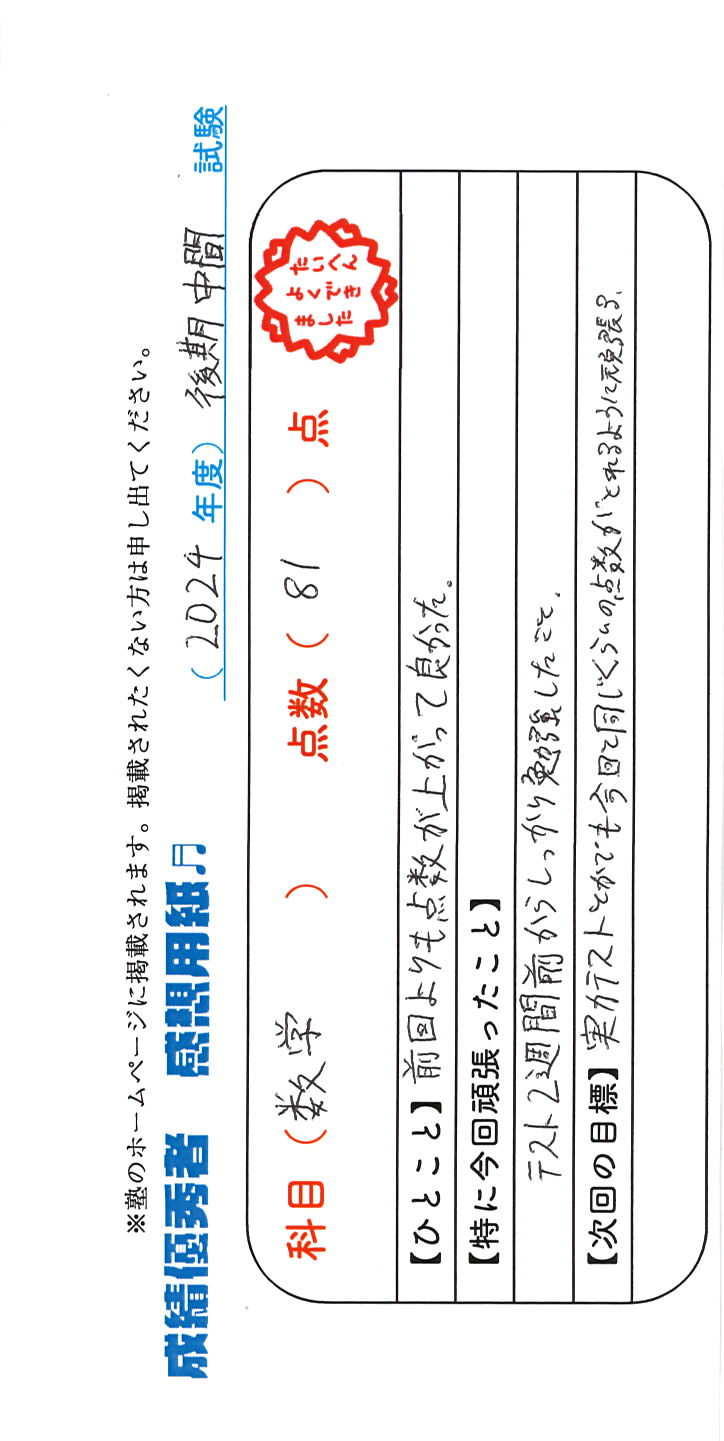 ※塾のホームページに掲載されます。掲載されたくない方は申し出てください。
成績優秀者 感想用紙♫ (2024年度) 後期中間 試験
科目 (数学) 点数 (81) 点
たいへん
よくでき
ました
【ひとこと】前回よりも点数が上がって良かった。
【特に今回頑張ったこと】
テスト2週間前からしっかり勉強したこと、
【次回の目標】実力テストとかでも今回と同じくらいの点数がとれるように頑張る、